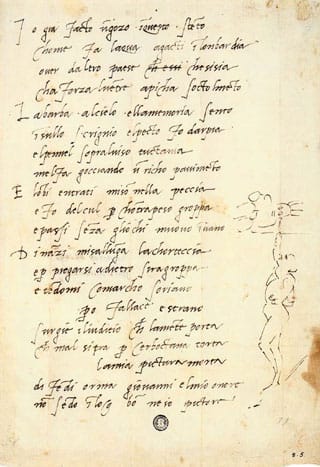 I o gia facto ngozo in questo steto
chome fa lacqua agacti ilombardia
over daltro paese ch essi chesisia
cha forza luetre apicha socto lmeto
L abarba alcielo ellamemoria sento
isullo scrignio elpecto fo darpia
elpennel sopraluiso tuctauia
melfa gocciando u richo pauimeto
E lobi entrati miso nella peccia
e fo delcul p chotrapeso groppa
e passi seza gliochi muouo inuano
D inazi misalluga lachorteccia
e p piegarsi adietro siragroppa
e tedomi comarcho soriano
po fallace e strano
surgie iluditio ch lamete porta
ch mal sipra p cerboctana torta
lamia pictura morta
di fedi orma giouanni elmio onore
no sedo ilog bo ne io pictore